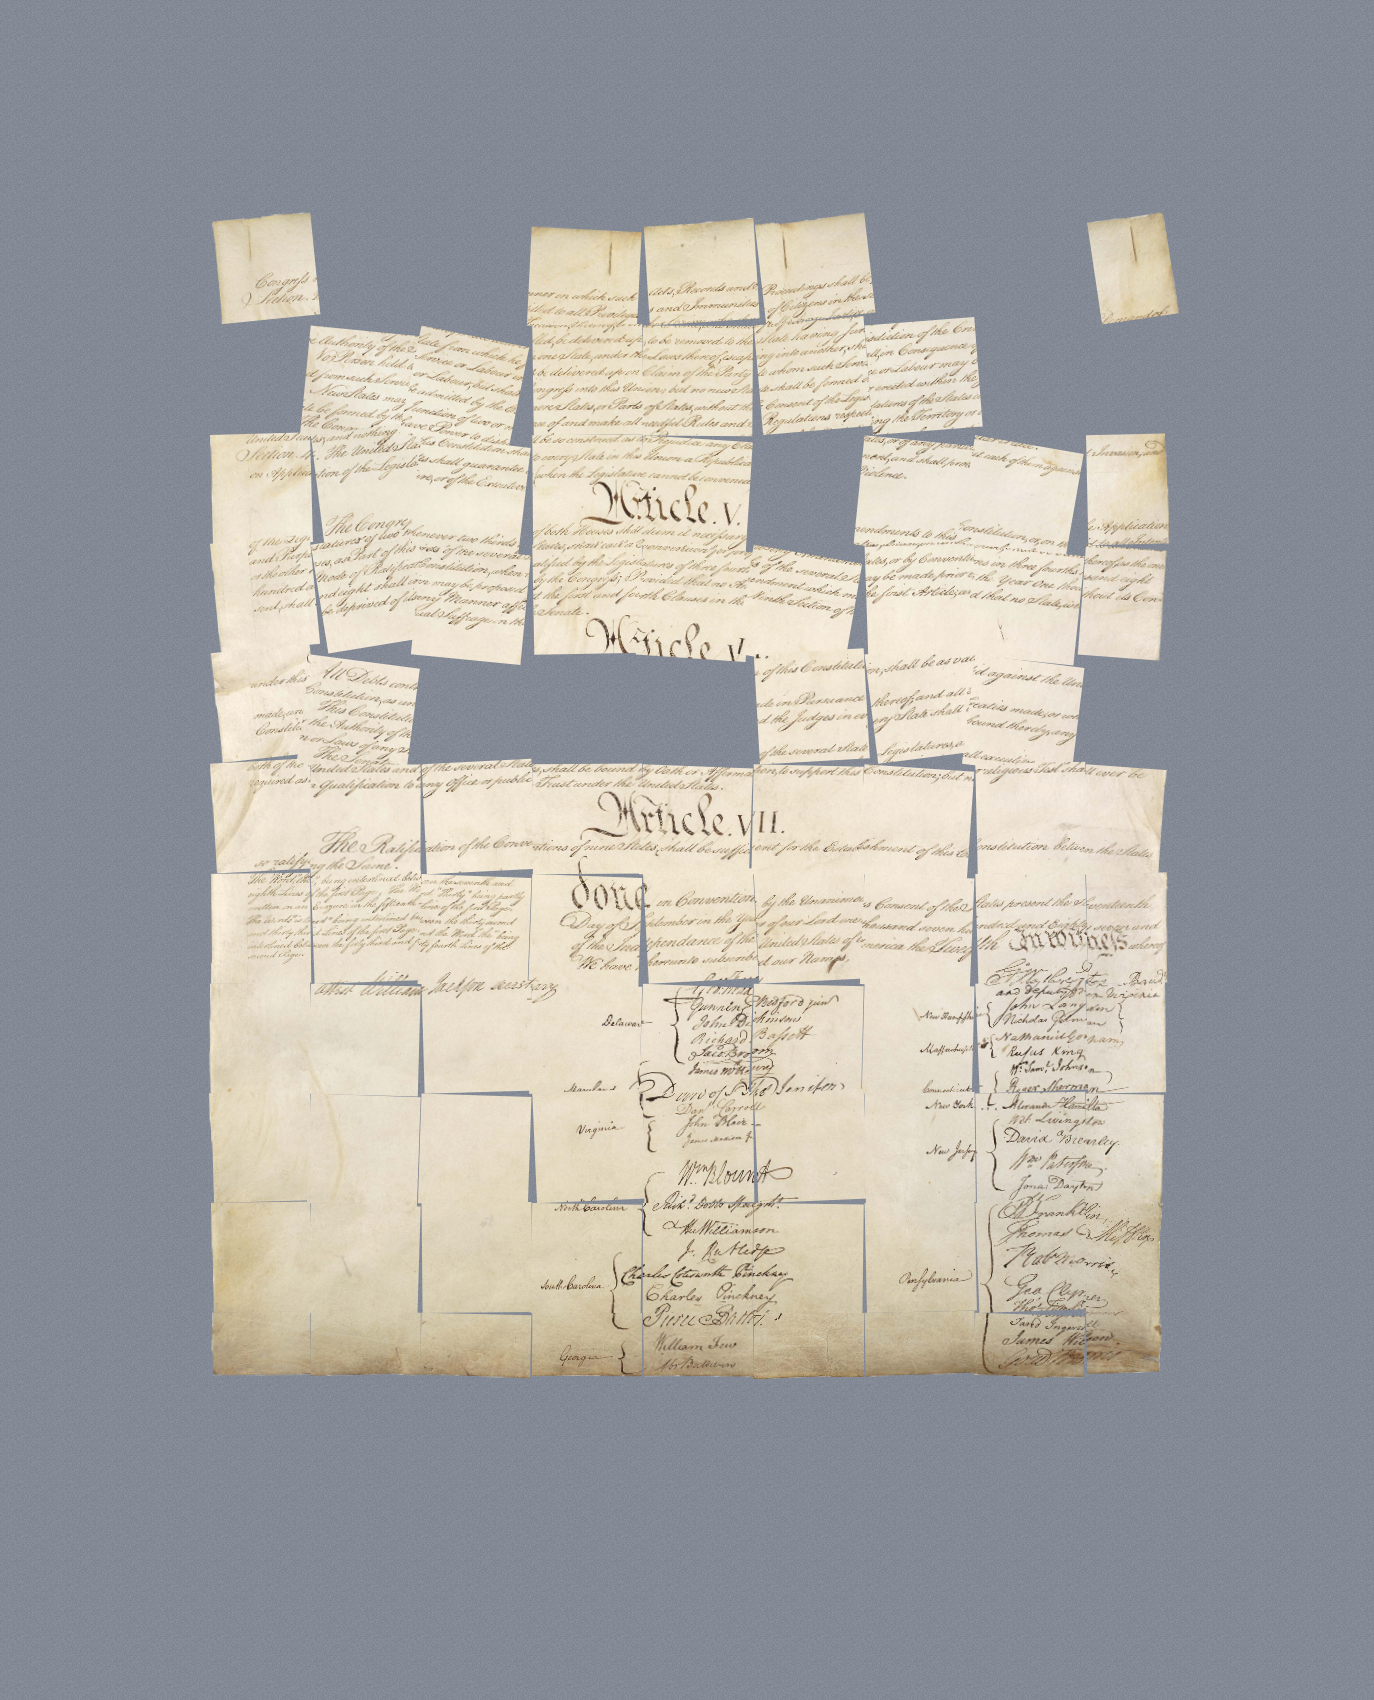 Congress
Section.
ner in which such Acts, Records and Proceedings shall be
tled to all Privileges and Immunities of Citizens in the
on Demand of
State from which he
Authority of the
led, be delivered up, to be removed to the State having Jurisdiction of the Cri
No Person held Service or Labour in one State, under the Laws thereof, escaping into another, shall, in Consequence of
from such Service or Labour, but shall be delivered up on Claim of the Party to whom such Service or Labour may be
New States may be admitted by the Congress into this Union; but no new State shall be formed or erected within the
to be formed by the Junction of two or more States, or Parts of States, without the Consent of the Legislatures of the States
The Congress shall have Power to dispose of and make all needful Rules and Regulations respecting the Territory or
United States; and nothing in this Constitution shall be so construed as to Prejudice any Cla
Section. 4. The United States shall guarantee to every State in this Union a Republica
Invasion; and
on Application of the Legislature, or of the Executive (when the Legislature cannot be convened
Violence.
Article. V.
The Congress, whenever two thirds of both Houses shall deem it necessary
mendments to this Constitution, or, on the Application
of the Legislatures of two thirds of the several States, shall call a Convention for
and Purposes, as Part of this Constitution, when ratified by the Legislatures of three fourths of the several States, or by Conventions in three fourths thereof, as the one
or the other Mode of Ratification may be proposed by the Congress; Provided that no Amendment which may be made prior to the Year One thousand eight
hundred and eight shall in any Manner affect the first and fourth Clauses in the Ninth Section of the first Article; and that no State, without its Con
sent, shall be deprived of its equal Suffrage in the Senate.
Article. VI.
All Debts cont
of this Constitution, shall be as valid against the Uni
under this Constitution, as un
This Constitution
made in Pursuance thereof; and all Treaties made, or wh
made, under the Authority of the
d the Judges in every State shall be bound thereby, any
Constitution or Laws of any St
The Senat
of the several State Legislatures, a all executive
both of the United States and of the several States, shall be bound by Oath or Affirmation, to support this Constitution; but no religious Test shall ever be
required as a Qualification to any Office or public Trust under the United States.
Article. VII.
The Ratification of the Conventions of nine States, shall be sufficient for the Establishment of this Constitution between the States
so ratifying the Same.
The Word, the, being interlined between the seventh and
eighth Lines of the first Page, The Word "Thirty" being partly
written on an Erazure in the fifteenth Line of the first Page,
The Words "is tried" being interlined between the thirty second
and thirty third Lines of the first Page and the Word "the" being
interlined between the forty third and forty fourth Lines of the
second Page.
done in Convention by the Unanimous Consent of the States present the Seventeenth
Day of September in the Year of our Lord one thousand seven hundred and Eighty seven and
of the Independance of the United States of America the Twelfth In Witness whereof
We have hereunto subscribed our Names,
attest William Jackson Secretary
and deputy from Virginia
Delaware
Gunning Bedford jun
John Dickinson
Richard Bassett
Jaco: Broom
Maryland
James McHenry
Dan of St Thos Jenifer
Danl Carroll
Virginia
John Blair—
James Madison Jr
North Carolina
Wm Blount
Richd Dobbs Spaight.
Hu Williamson
South Carolina
J. Rutledge
Charles Cotesworth Pinckney
Charles Pinckney
Pierce Butler.
Georgia
William Few
Abr Baldwin
New Hampshire
John Langdon
Nicholas Gilman
Massachusetts
Nathaniel Gorham
Rufus King
Connecticut
Wm Saml Johnson
Roger Sherman
New York
Alexander Hamilton
New Jersey
Wil Livingston
David Brearley.
Wm Paterson.
Jona: Dayton
Pensylvania
B Franklin
Thomas Mifflin
Robt Morris
Geo. Clymer
Thos FitzSimons
Jared Ingersoll
James Wilson.
Gouv Morris